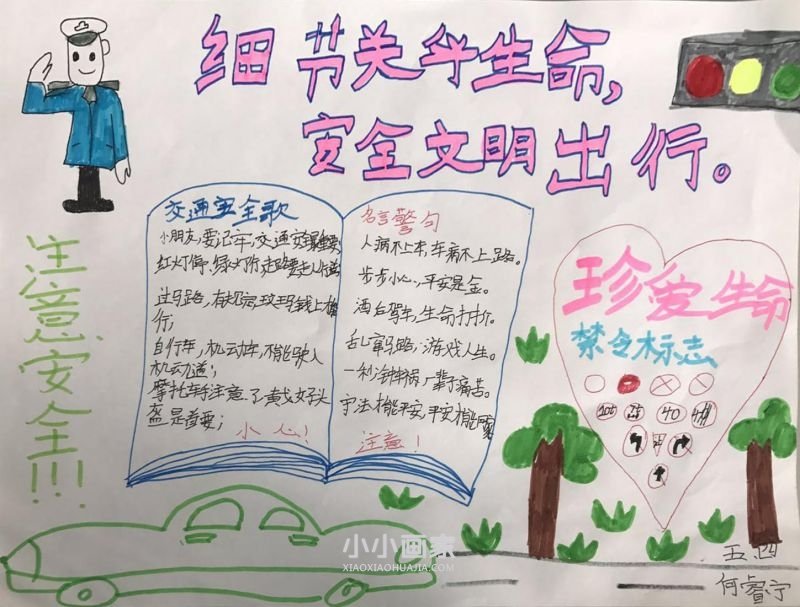 细节关乎生命，
安全文明出行。
注意安全!!!
交通安全歌
小朋友,要记牢,交通安全
红灯停,绿灯行,走路要走人行道
过马路,有
行;
自行车,机动车,不能驶入
机动道;
摩托车注意了,戴好头
盔是首要;
小心!
名言警句
人病不上床,车病不上路。
步步小心,平安是金。
酒后驾车,生命打折。
乱窜马路,游戏人生。
一秒钟车祸,一辈子痛苦。
守法才能平安,平安才能
注意!
珍爱生命
禁令标志
40
小小画家
XIAOXIAOHUAJIA.COM
五四
何睿宁